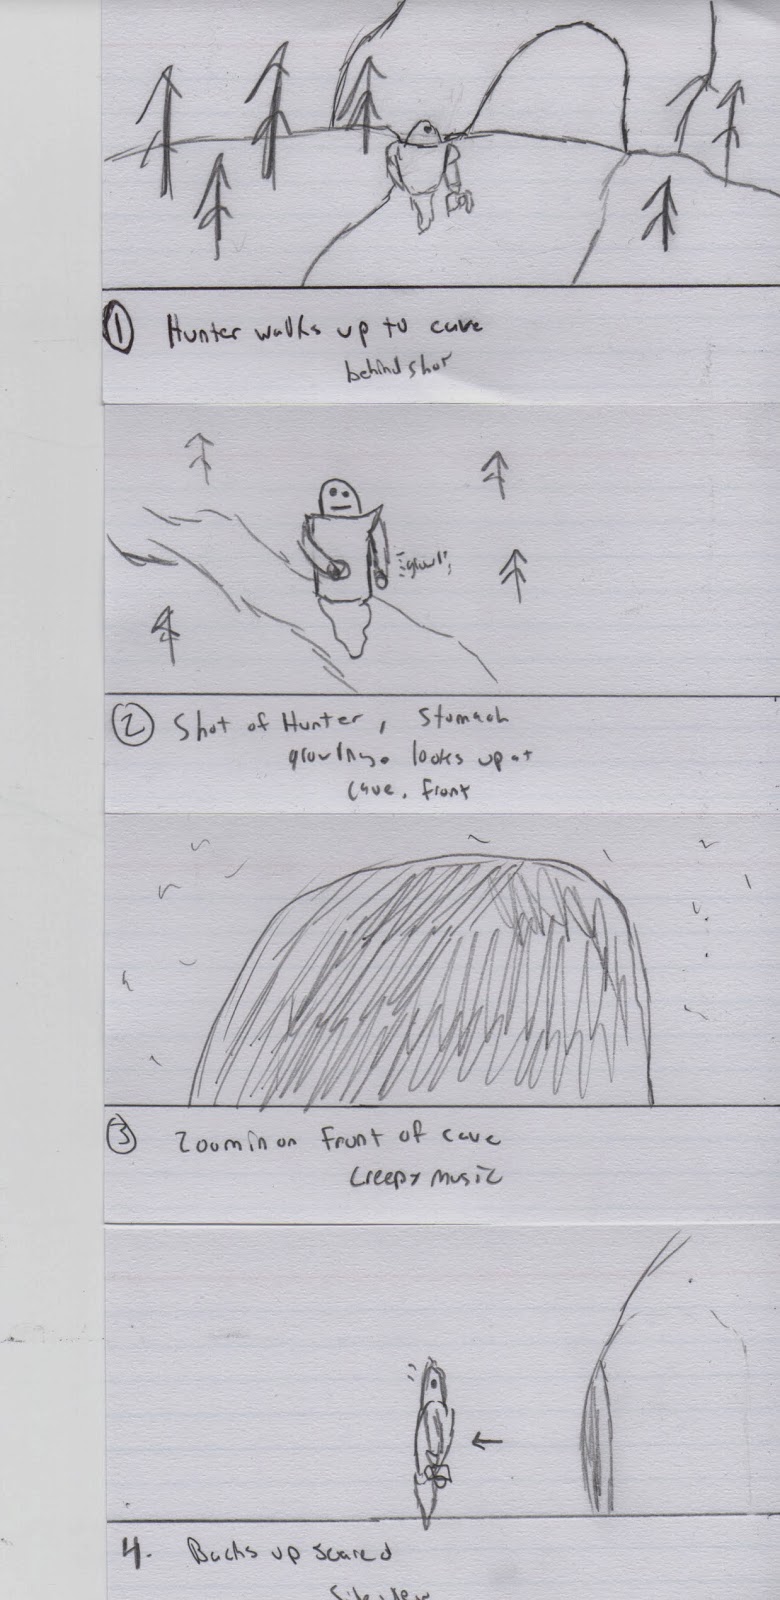 1 Hunter walks up to cave
behind shot
growl
2 Shot of Hunter, Stomach
growling. looks up at
cave. front
3 Zoom in on front of cave
creepy music
4. Backs up scared
Side view